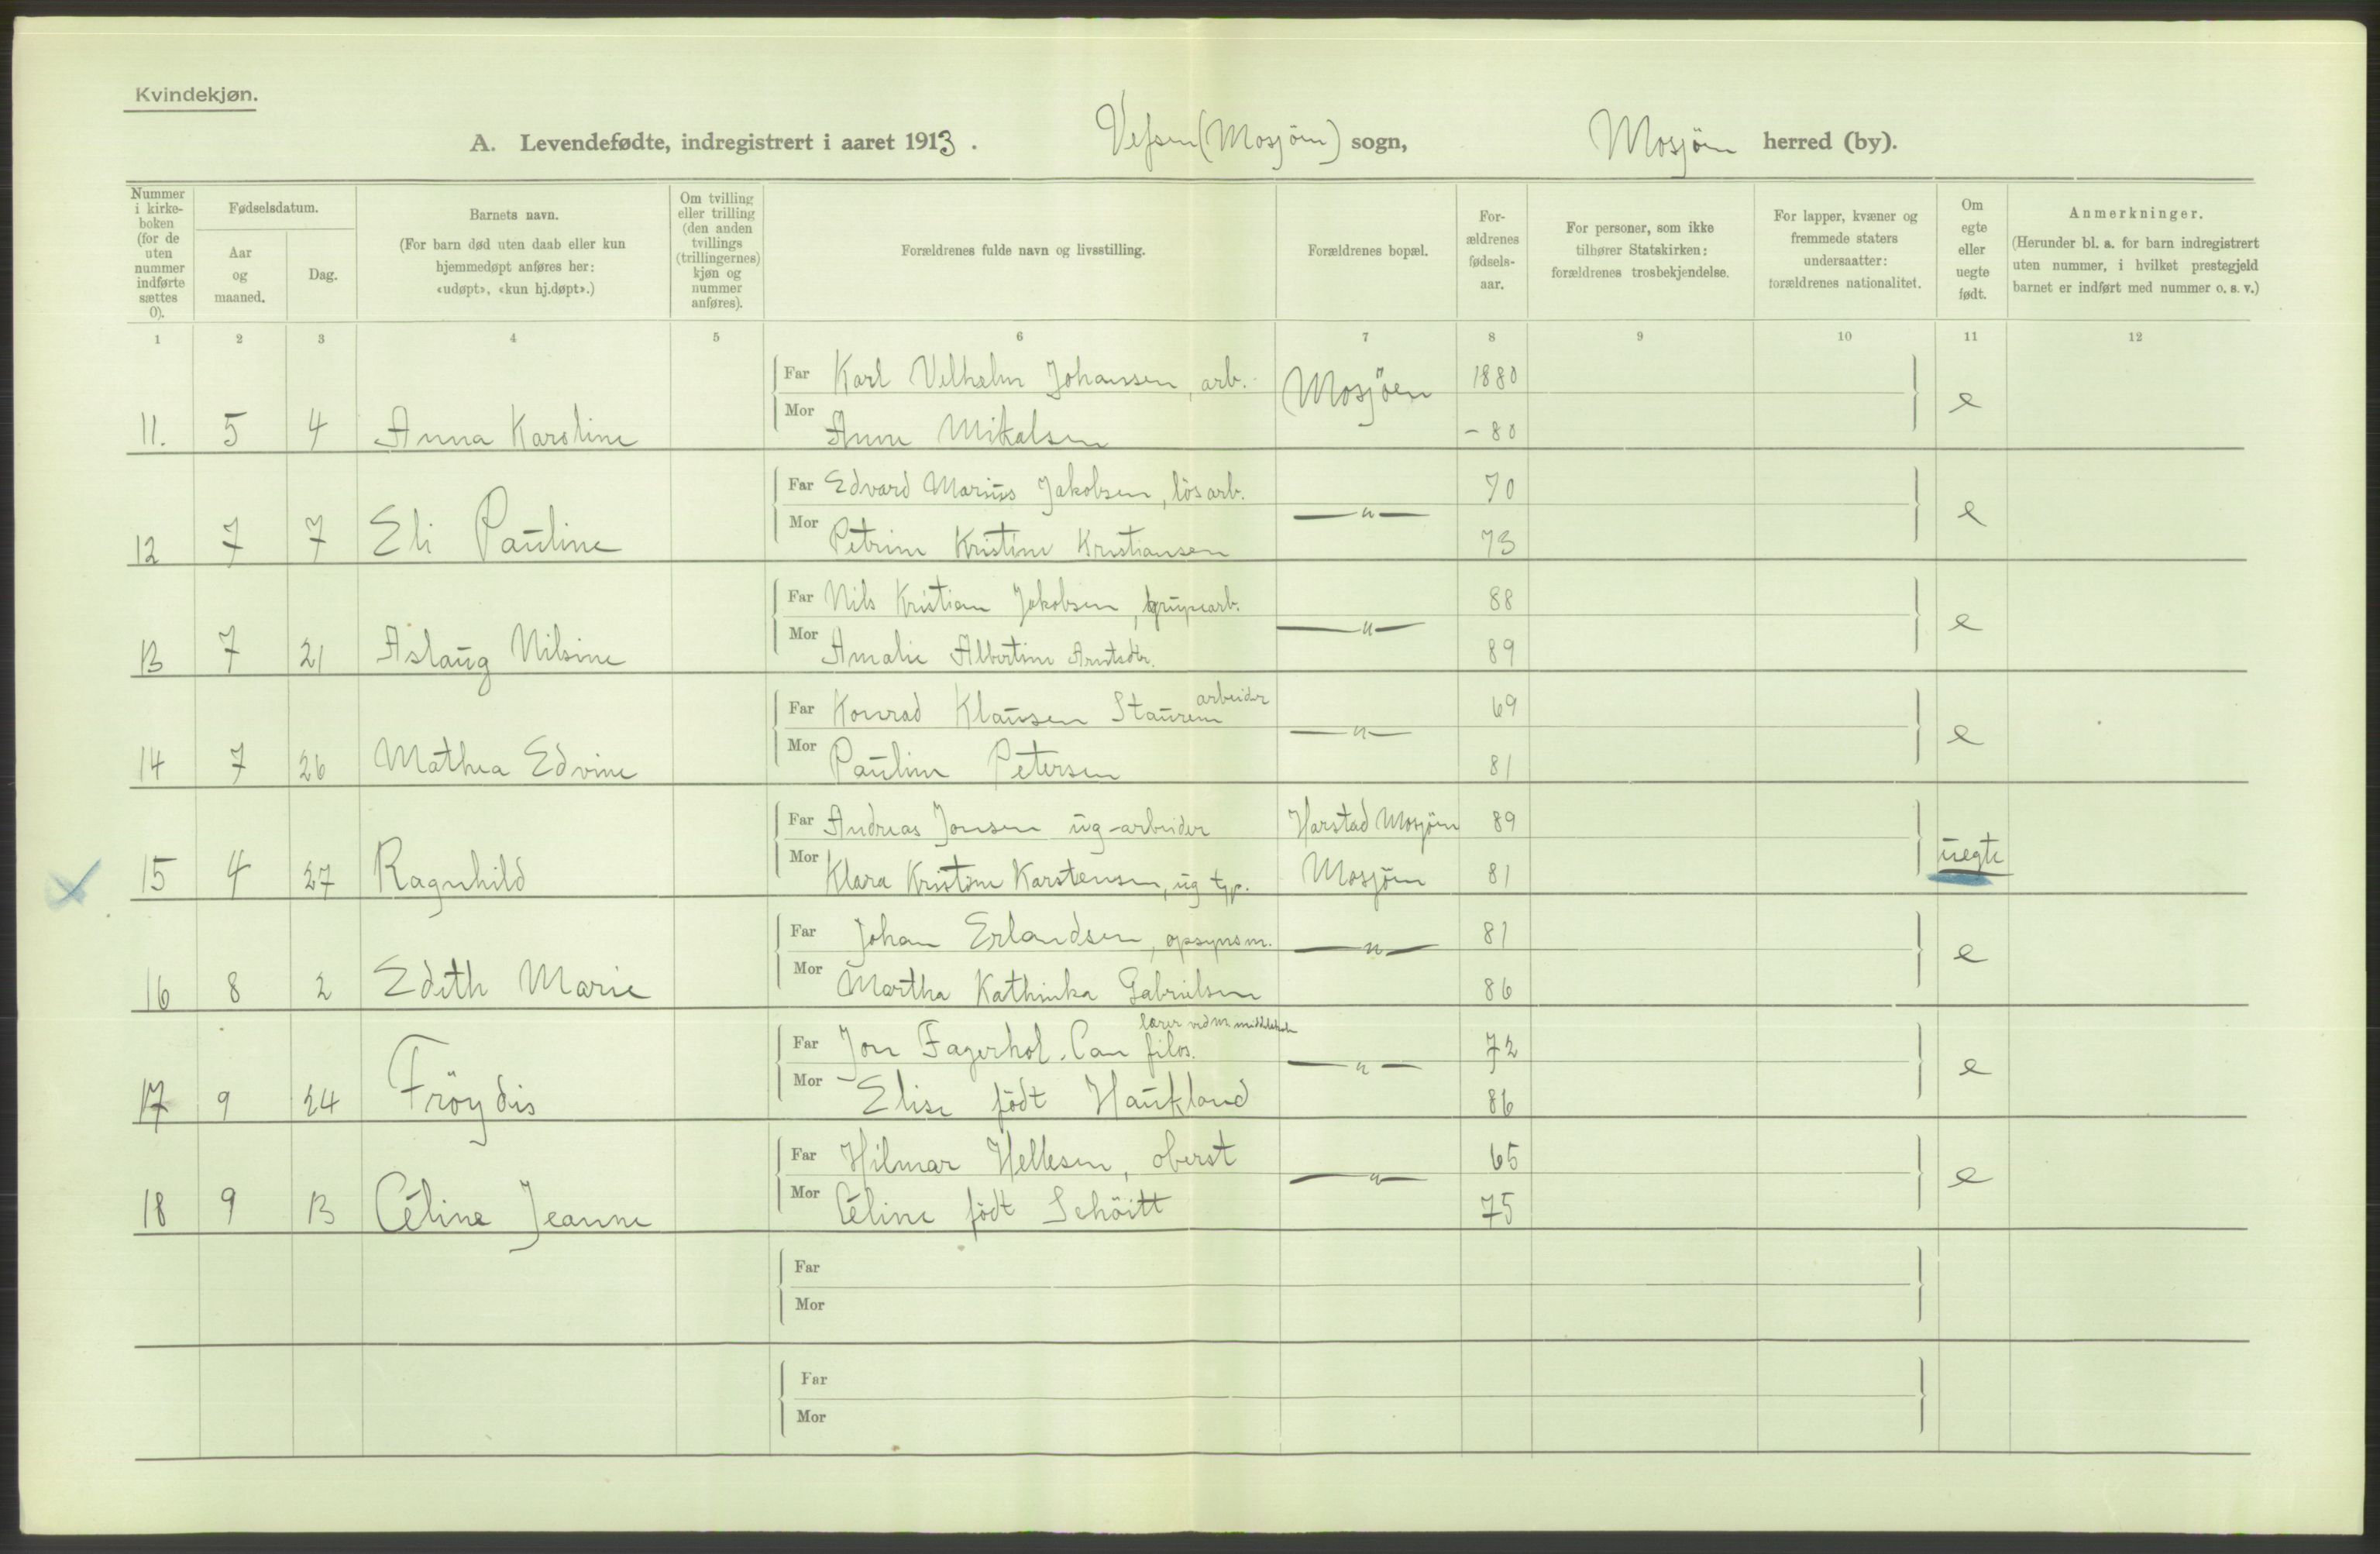 Kvindekjøn.
A. Levendefødte, indregistrert i aaret 1913. Vefsen (Mosjöen) sogn, Mosjöen herred (by).
Nummer i kirkeboken (for de uten nummer indførte sættes 0).
Fødselsdatum.
Aar og maaned.
Dag.
Barnets navn.
(For barn død uten daab eller kun hjemmedøpt anføres her: «udøpt», «kun hj.døpt».)
Om tvilling eller trilling (den anden tvillings (trillingernes) kjøn og nummer anføres).
Forældrenes fulde navn og livsstilling.
Forældrenes bopæl.
Forældrenes fødselsaar.
For personer, som ikke tilhører Statskirken: forældrenes trosbekjendelse.
For lapper, kvæner og fremmede staters undersaatter: forældrenes nationalitet.
Om egte eller uegte født.
Anmerkninger.
(Herunder bl. a. for barn indregistrert uten nummer, i hvilket prestegjeld barnet er indført med nummer o. s. v.)
1 2 3 4 5 6 7 8 9 10 11 12
Far Karl Vilhelm Johansen, arb. Mosjöen 1880
11. 5 4 Anna Karoline Mor Anne Mikalsen - 80 e
Far Edvard Marius Jakobsen, lösarb. —"— 70
12 7 7 Eli Pauline Mor Petrine Kristine Kristiansen 73 e
Far Nils Kristian Jakobsen, —"— 88
13 7 21 Aslaug Nilsine Mor Amalie Albertine Arntsdtr. 89 e
Far Konrad Klausen Staurem arbeider —"— 69
14 7 26 Mathea Edvine Mor Pauline Petersen 81 e
Far Andreas Jonsen ug-arbeider Harstad Mosjöen 89
15 4 27 Ragnhild Mor Klara Kristine Karstensen, ug tyr. Mosjöen 81 uegte
Far Johan Erlandsen, opsynsm. —"— 81
16 8 2 Edith Marie Mor Martha Kathinka Gabrielsen 86 e
Far Jon Fagerhol. Can filos. lærer ved M. middelskole —"— 72
17 9 24 Fröydis Mor Elise födt Haukland 86 e
Far Hilmar Hellesen, oberst —"— 65
18 9 13 Céline Jeanne Mor Céline födt Schöitt 75 e
Far
Mor
Far
Mor